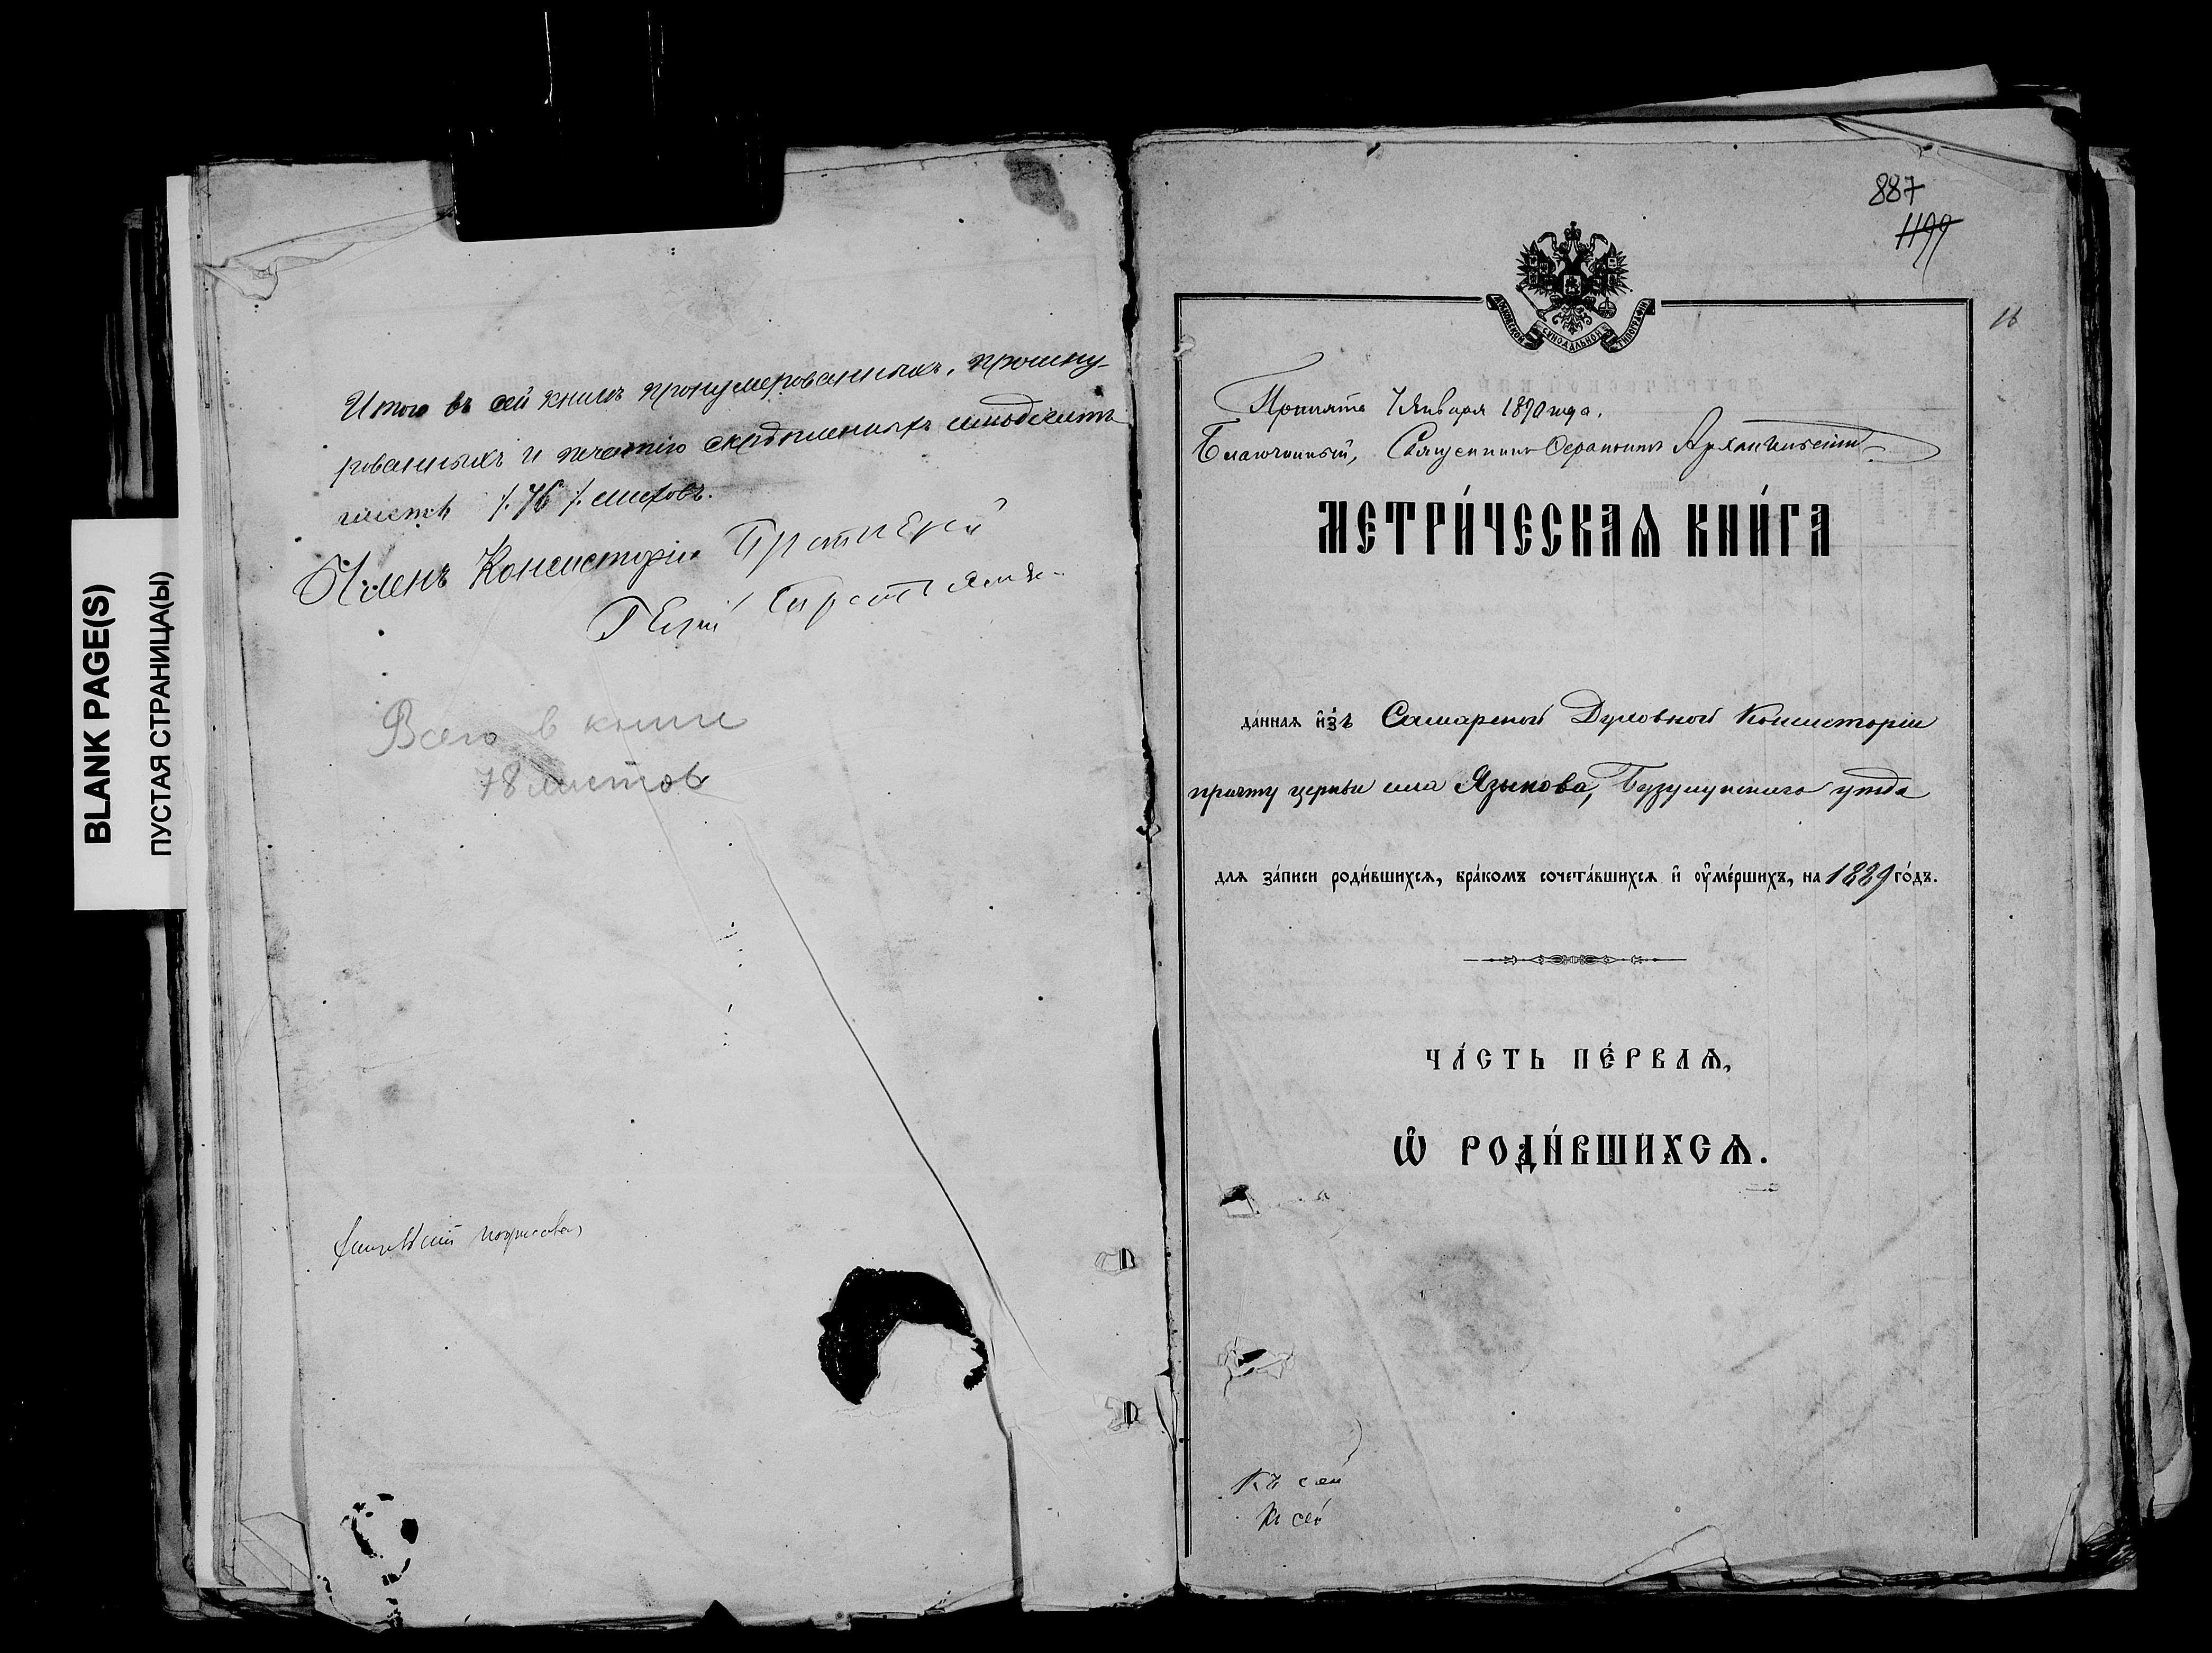 BLANK PAGE(S)
ПУСТАЯ СТРАНИЦА(Ы)
Итого въ сей книгѣ пронумерованныхъ, прошну-
рованныхъ и печатію скрѣпленныхъ семьдесятъ
шесть /.76/. листовъ.
Членъ Консисторіи Протоіерей
Всего в книге
78 листов
887
1199
МОСКОВСКОЙ СѴНОДАЛЬНОЙ ТИПОГРАФІИ
Принята 7 Января 1890 года.
Благочинный, Священникъ Серапіонъ Архангельскій
МЕТРИ́ЧЕСКАѦ КНИ́ГА
да́ннаѧ и҆зъ Самарской Духовной Консисторіи
причту церкви села Языкова, Бузулукскаго уѣзда
длѧ за́писи роди́вшихсѧ, бра́комъ сочета́вшихсѧ и҆ ᲂу҆ме́ршихъ, на 1889 го́дъ.
ЧА́СТЬ ПЕ́РВАѦ,
Ѡ҆ РОДИ́ВШИХСѦ.
Къ сей
Къ сей